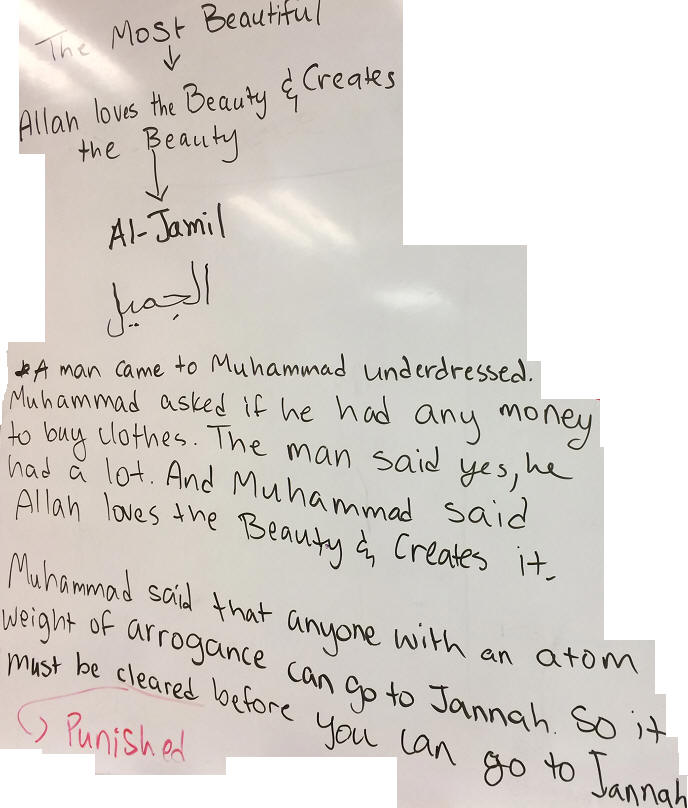 The Most Beautiful
Allah loves the Beauty & Creates
the Beauty
Al-Jamil
الجميل
*A man came to Muhammad underdressed.
Muhammad asked if he had any money
to buy clothes. The man said yes, he
had a lot. And Muhammad said
Allah loves the Beauty & Creates it.
Muhammad said that anyone with an atom
weight of arrogance can go to Jannah. So it
must be cleared before you can go to Jannah
Punished